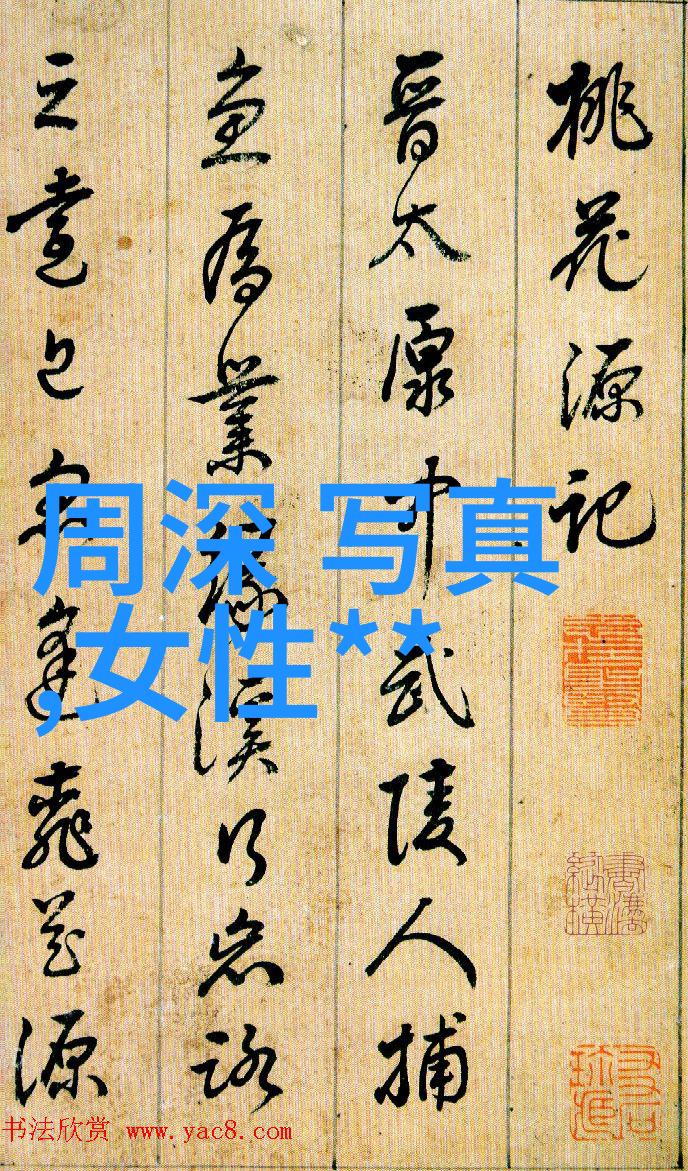 桃花源記
晉太原中武陵人捕
魚為業緣溪行忘路
之遠近忽逢桃花源
周深 写真
,女性**
书法欣赏 www.yac8.com